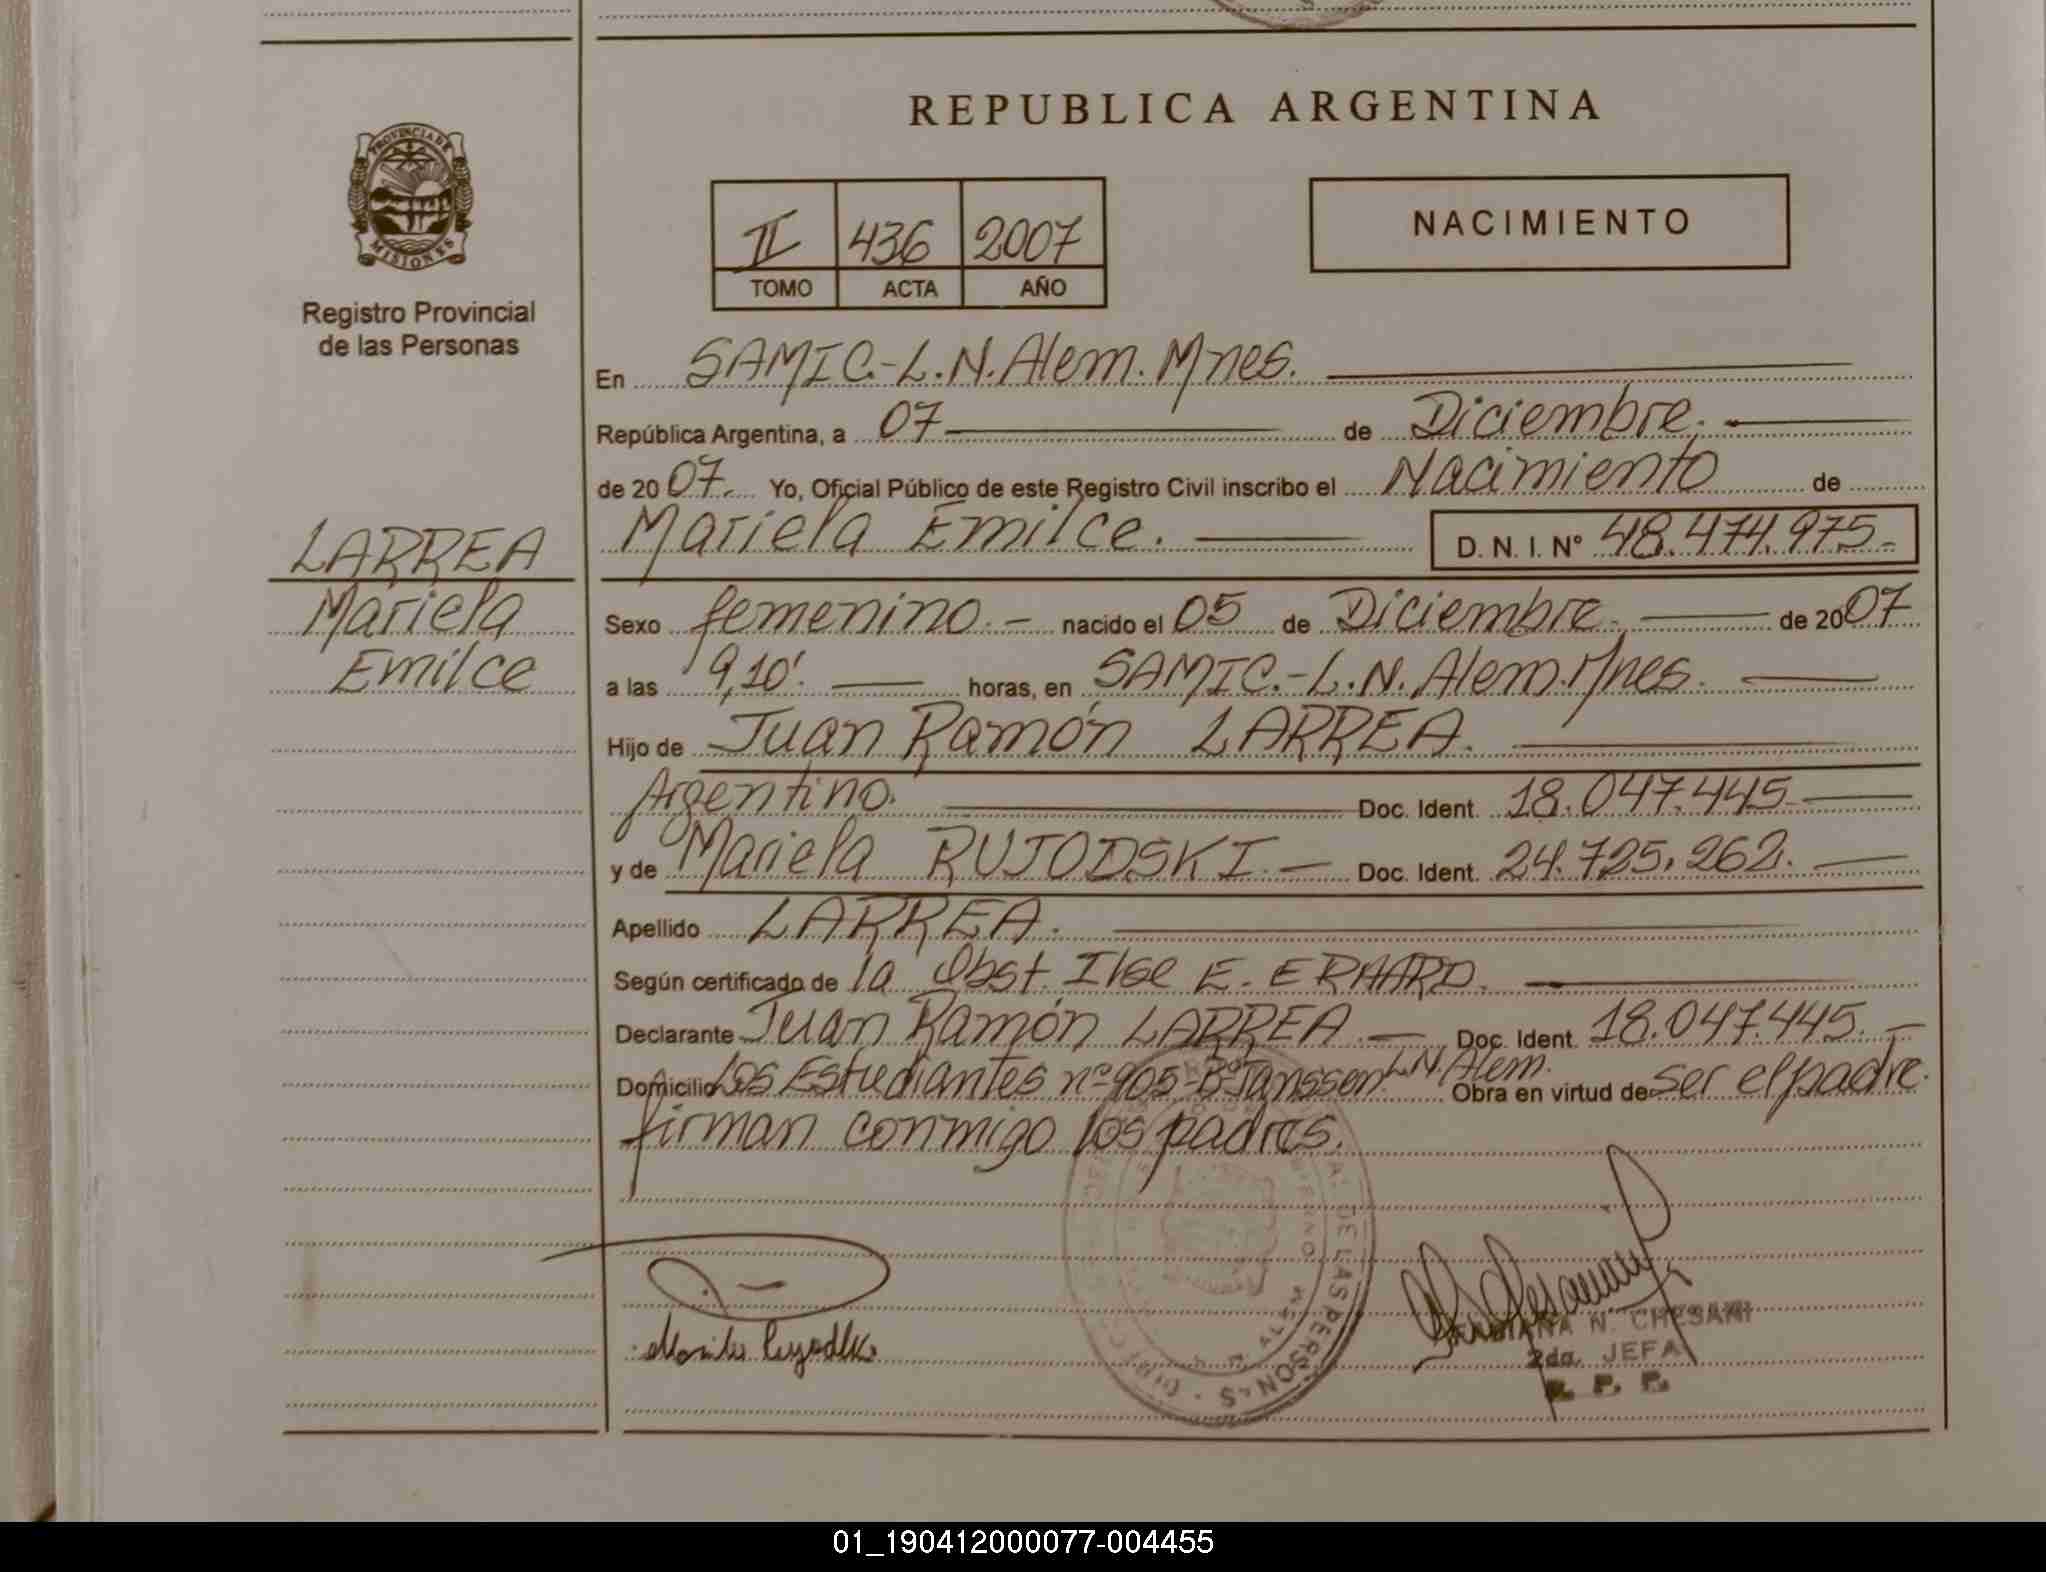 REPUBLICA ARGENTINA
PROVINCIA DE MISIONES
Registro Provincial
de las Personas
II 436 2007
TOMO ACTA AÑO
NACIMIENTO
En SAMIC.-L.N.Alem.Mnes.
República Argentina, a 07 de Diciembre.
de 20 07. Yo, Oficial Público de este Registro Civil inscribo el Nacimiento de
Mariela Emilce. D. N. I. Nº 48.474.975.-
LARREA
Mariela
Emilce
Sexo femenino.- nacido el 05 de Diciembre. de 20 07
a las 9,10'. horas, en SAMIC.-L.N.Alem.Mnes.
Hijo de Juan Ramón LARREA.
Argentino. Doc. Ident. 18.047.445
y de Mariela RUJODSKI.- Doc. Ident. 24.725.262.
Apellido LARREA.
Según certificado de la Obst. Ilse E. ERHARD.
Declarante Juan Ramón LARREA.- Doc. Ident. 18.047.445.-
Domicilio Los Estudiantes nº 905-Bº Janssen. L.N. Alem. Obra en virtud de ser el padre.
firman conmigo los padres.
DE LAS PERSONAS
N. CHESANI
2da. JEFA
R. P. P.
01_190412000077-004455